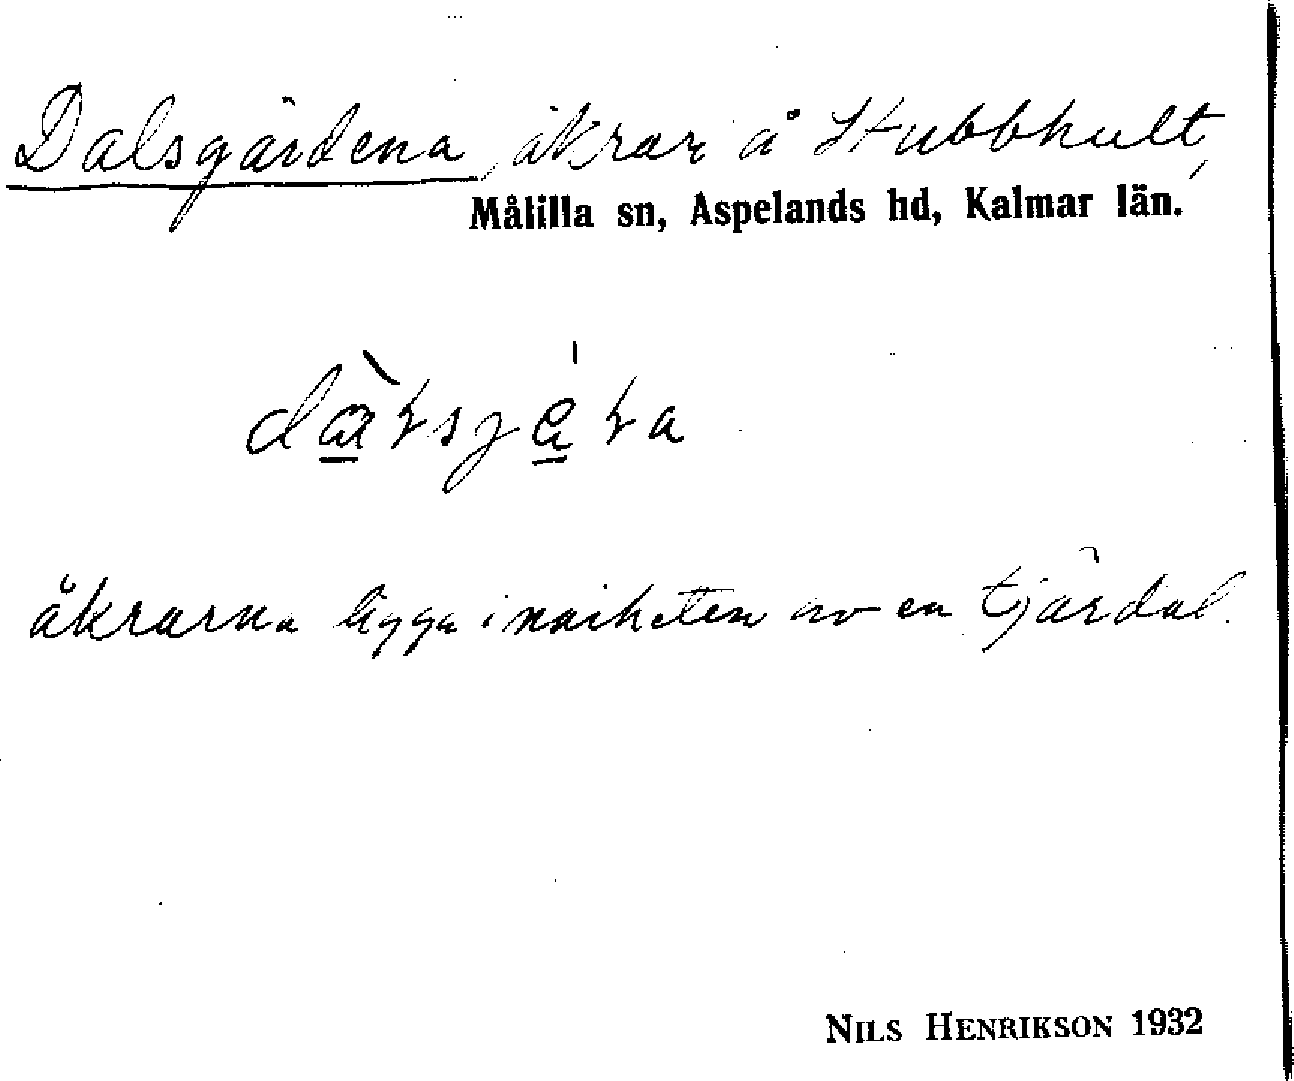 Dalsgärdena, åkrar å Stubbhult,
Målilla sn, Aspelands hd, Kalmar län.
åkrarna ligga i närheten av en tjärdal.
NILS HENRIKSON 1932